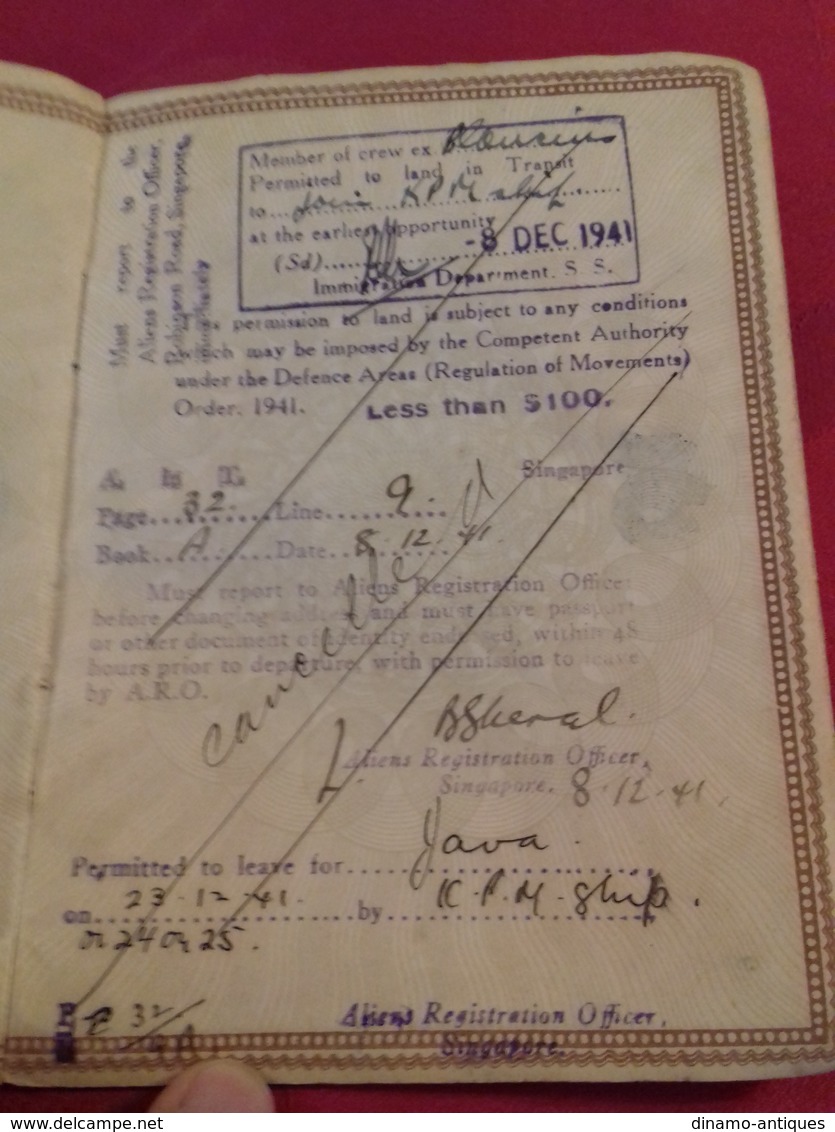 Must report to the
Aliens Registration Officer,
Robinson Road, Singapore,
immediately
Member of crew ex
Permitted to land in Transit
to Join K P M ship
at the earliest opportunity
(Sd) -8 DEC 1941
Immigration Department. S. S.
permission to land is subject to any conditions
which may be imposed by the Competent Authority
under the Defence Areas (Regulation of Movements)
Order. 1941. Less than $100.
Singapore
Page 32 Line 9
Book A Date 8.12.41.
Must report to Aliens Registration Officer
before changing address and must have passport
or other document of identity endorsed, within 48
hours prior to departure, with permission to leave
by A.R.O.
cancelled
Aliens Registration Officer,
Singapore. 8.12.41.
Permitted to leave for Java.
on 23.12.41. by K.P.M. ship.
or 24 or 25.
32
Aliens Registration Officer,
Singapore.
dinamo-antiques